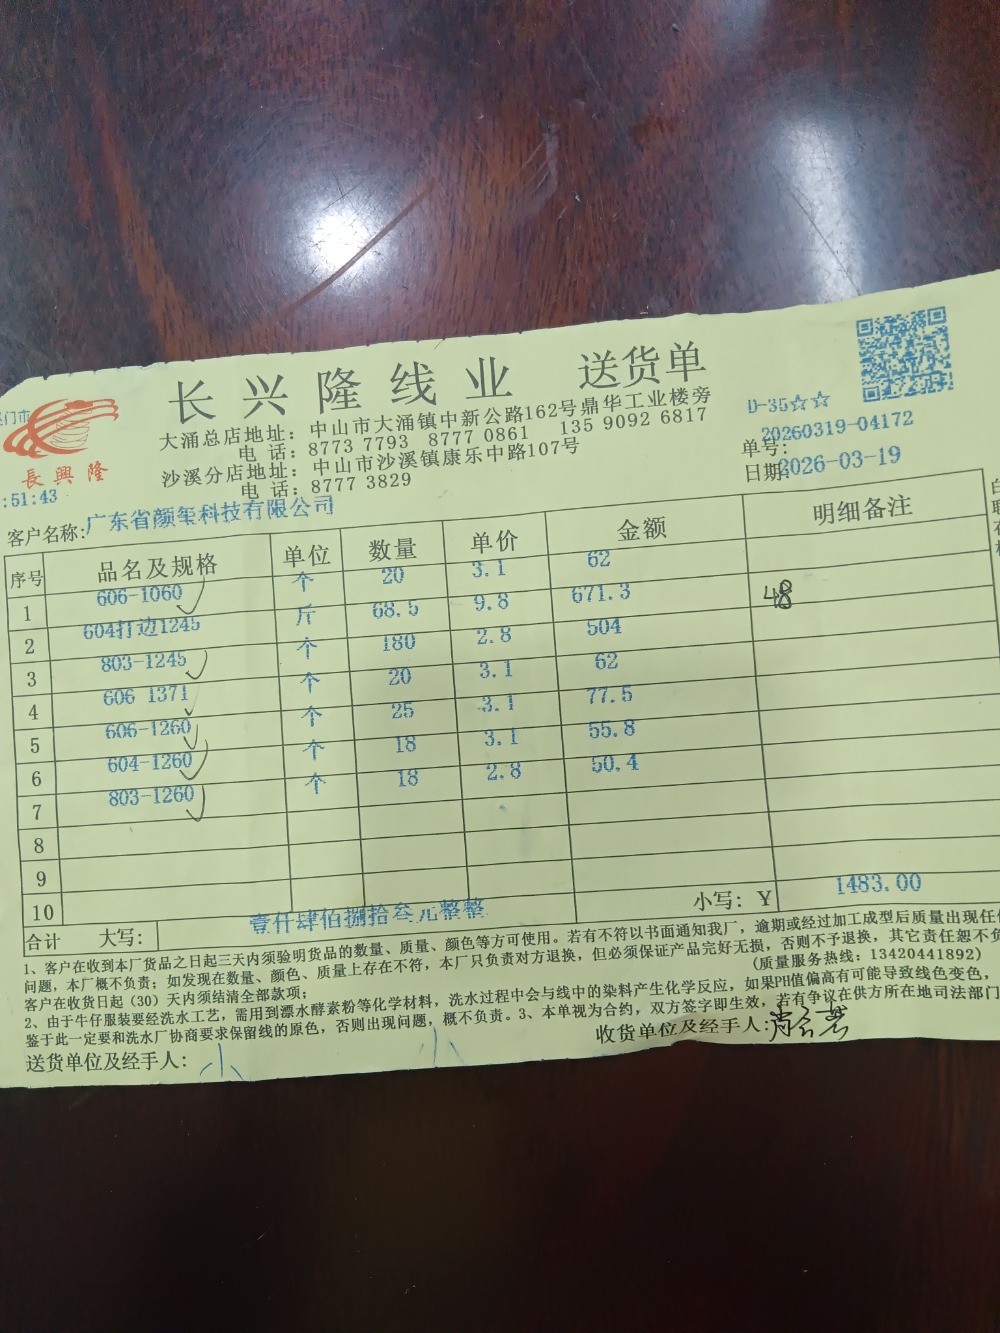 长兴隆线业 送货单
大涌总店地址：中山市大涌镇中新公路162号鼎华工业楼旁
电 话：8773 7793 8777 0861 135 9092 6817
沙溪分店地址：中山市沙溪镇康乐中路107号
电 话：8777 3829
長興隆
:51:43
D-35☆☆
单号：20260319-04172
日期：2026-03-19
客户名称：广东省颜玺科技有限公司
序号 品名及规格 单位 数量 单价 金额 明细备注
1 606-1060 个 20 3.1 62
2 604打边1245 斤 68.5 9.8 671.3 48
3 803-1245 个 180 2.8 504
4 606 1371 个 20 3.1 62
5 606-1260 个 25 3.1 77.5
6 604-1260 个 18 3.1 55.8
7 803-1260 个 18 2.8 50.4
8
9
10
合计 大写：壹仟肆佰捌拾叁元整整 小写：Y 1483.00
1、客户在收到本厂货品之日起三天内须验明货品的数量、质量、颜色等方可使用。若有不符以书面通知我厂，逾期或经过加工成型后质量出现任何
问题，本厂概不负责；如发现在数量、颜色、质量上存在不符，本厂只负责对方退换，但必须保证产品完好无损，否则不予退换，其它责任恕不负
客户在收货日起（30）天内须结清全部款项； (质量服务热线：13420441892)
2、由于牛仔服装要经洗水工艺，需用到漂水酵素粉等化学材料，洗水过程中会与线中的染料产生化学反应，如果PH值偏高有可能导致线色变色，
鉴于此一定要和洗水厂协商要求保留线的原色，否则出现问题，概不负责。3、本单视为合约，双方签字即生效，若有争议在供方所在地司法部门
送货单位及经手人： 收货单位及经手人：